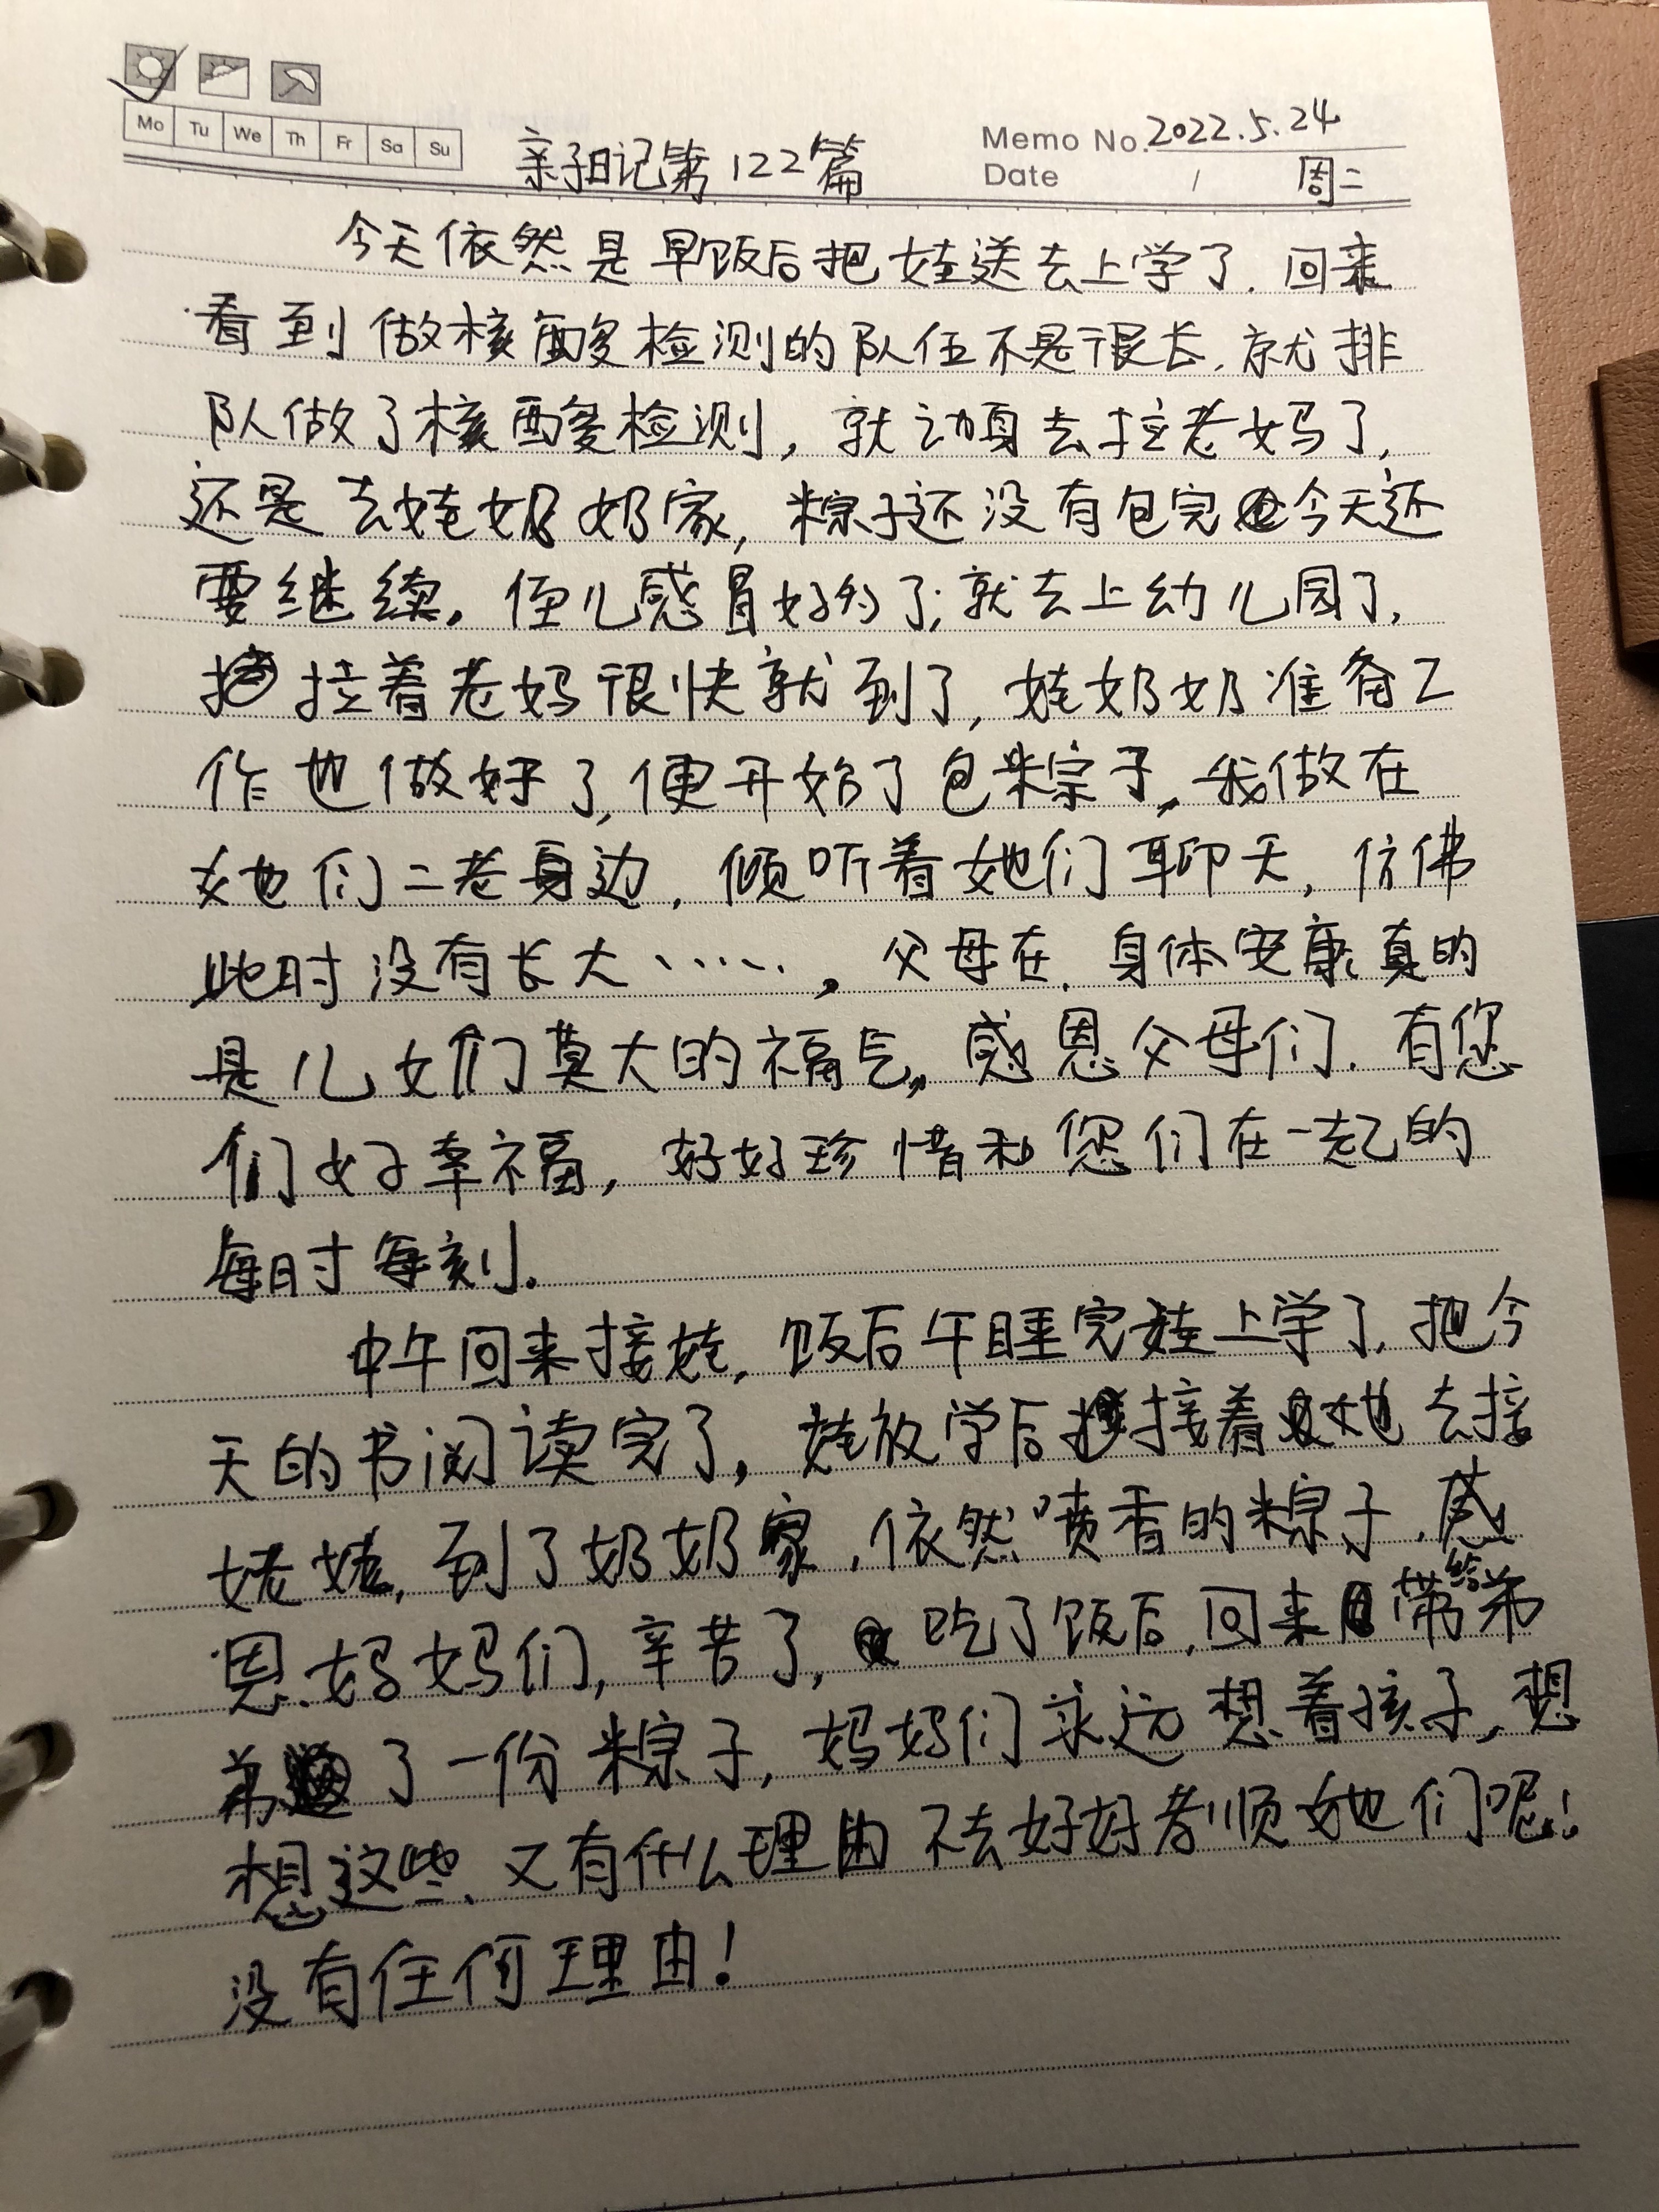 Mo Tu We Th Fr Sa Su
Memo No. 2022.5.24
Date / 周二
亲子日记第122篇
今天依然是早饭后把娃送去上学了. 回来
看到做核酸检测的队伍不是很长, 就排
队做了核酸检测, 就动身去拉老妈了,
还是去娃奶奶家, 粽子还没有包完 今天还
要继续. 侄儿感冒好多了, 就去上幼儿园了,
拉着老妈很快就到了, 娃奶奶准备工
作也做好了, 便开始了包粽子, 我做在
她们二老身边, 倾听着她们聊天, 仿佛
此时没有长大……, 父母在, 身体安康真的
是儿女们莫大的福气, 感恩父母们. 有您
们好幸福, 好好珍惜和您们在一起的
每时每刻.
中午回来接娃, 饭后午睡完娃上学了, 把今
天的书阅读完了, 娃放学后接着她去接
姥姥, 到了奶奶家, 依然喷香的粽子, 感
恩妈妈们, 辛苦了, 吃了饭后, 回来带给弟
弟了一份粽子, 妈妈们永远想着孩子, 想
想这些、又有什么理由不去好好孝顺她们呢!
没有任何理由!